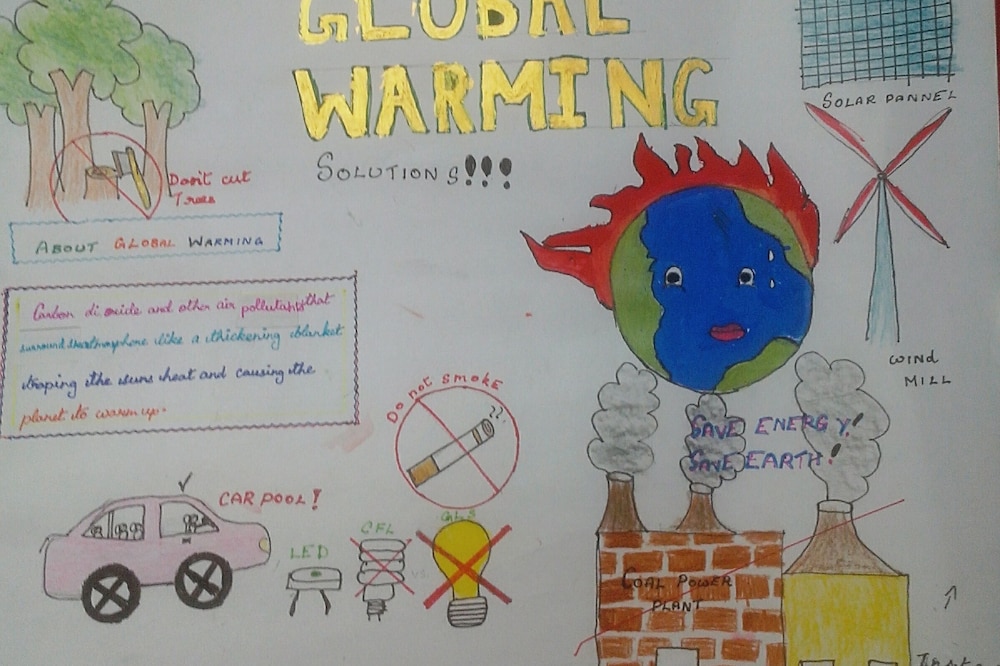 GLOBAL
WARMING
SOLUTIONS!!!
SOLAR PANNEL
Don't cut
Trees
ABOUT GLOBAL WARMING
Carbon di oxide and other air pollutants that
surround the atmosphere like a thickening blanket
traping the suns heat and causing the
planet to warm up.
WIND
MILL
Do not smoke
SAVE ENERGY!
SAVE EARTH!
CAR POOL!
LED
CFL
GLS
COAL POWER
PLANT